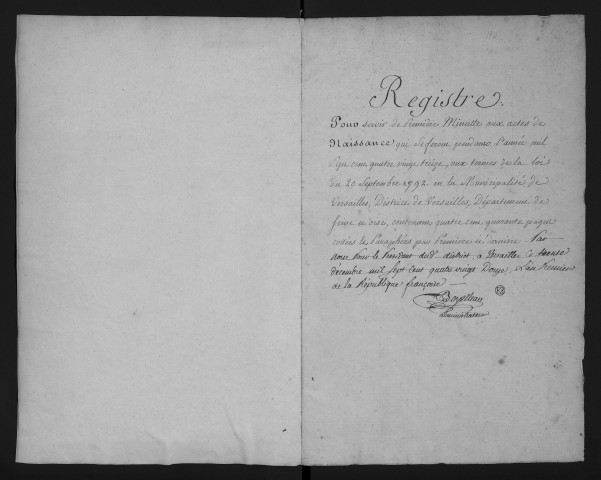 Registre.
Pour servir de Premiere Minutte aux actes de
Naissance qui Se feront pendant l'année mil
Sept cent quatre vingt treize, aux termes de la loi
du 20 Septembre 1792. en la Municipalité de
Versailles, District de Versailles, Département de
Seine et oise, contenant quatre cent quarante pages
cotées et Paraphées par Premiere et derniere Par
nous Pour le President dud. district, a Versailles Ce
décembre mil Sept Cent quatre vingt Douze, L'an Premier
de la République françoise
administrateur